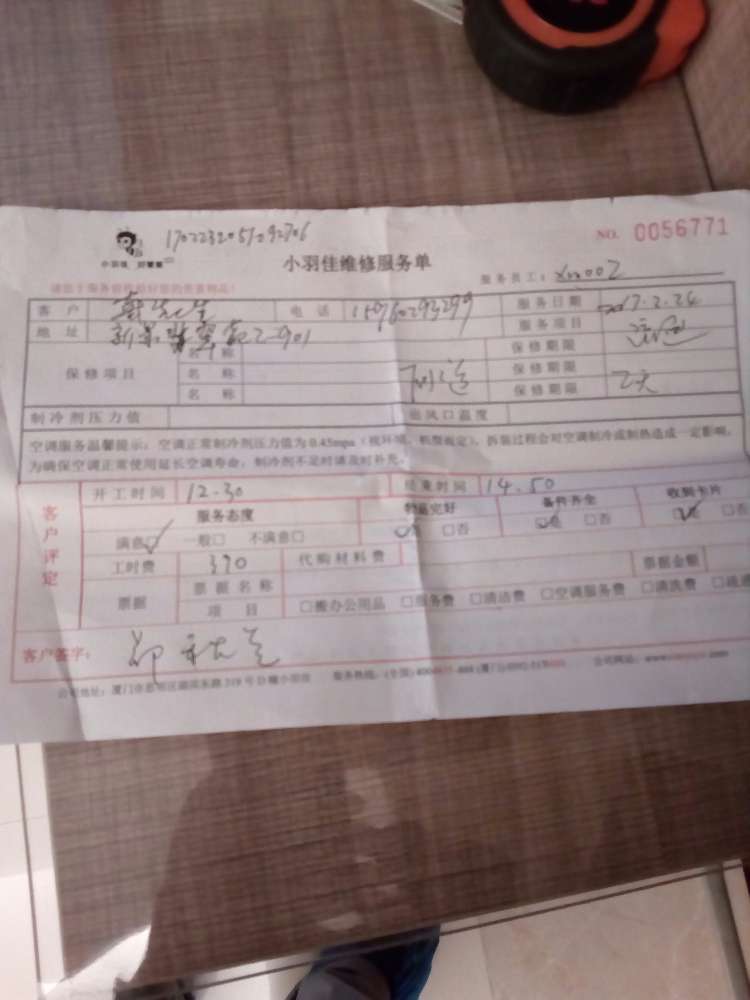 170223205129２706
NO. 0056771
小羽佳 好管家
小羽佳维修服务单
服务员工: xm002
客户 先生 电话 15960293299 服务日期 2017.2.24
地址 新景 2-901 服务项目
保修项目 名称 保修期限
名称 保修期限
名称 保修期限
制冷剂压力值 出风口温度
空调服务温馨提示:空调正常制冷剂压力值为0.45mpa(视环境、机型而定),拆装过程会对空调制冷或制热造成一定影响,
为确保空调正常使用延长空调寿命,制冷剂不足时请及时补充。
客户评定
开工时间 12.30 结束时间 14.50
服务态度 物品完好 备件齐全 收到卡片
满意□ 一般□ 不满意□ □是 □否 □是 □否 □是 □否
工时费 370 代购材料费 票据金额
票据 票据名称
项目 □搬办公用品 □服务费 □清洁费 □空调服务费 □清洗费 □疏通
客户签字:
公司地址:厦门市思明区 319号 服务热线:(全国) (厦门) 公司网站: